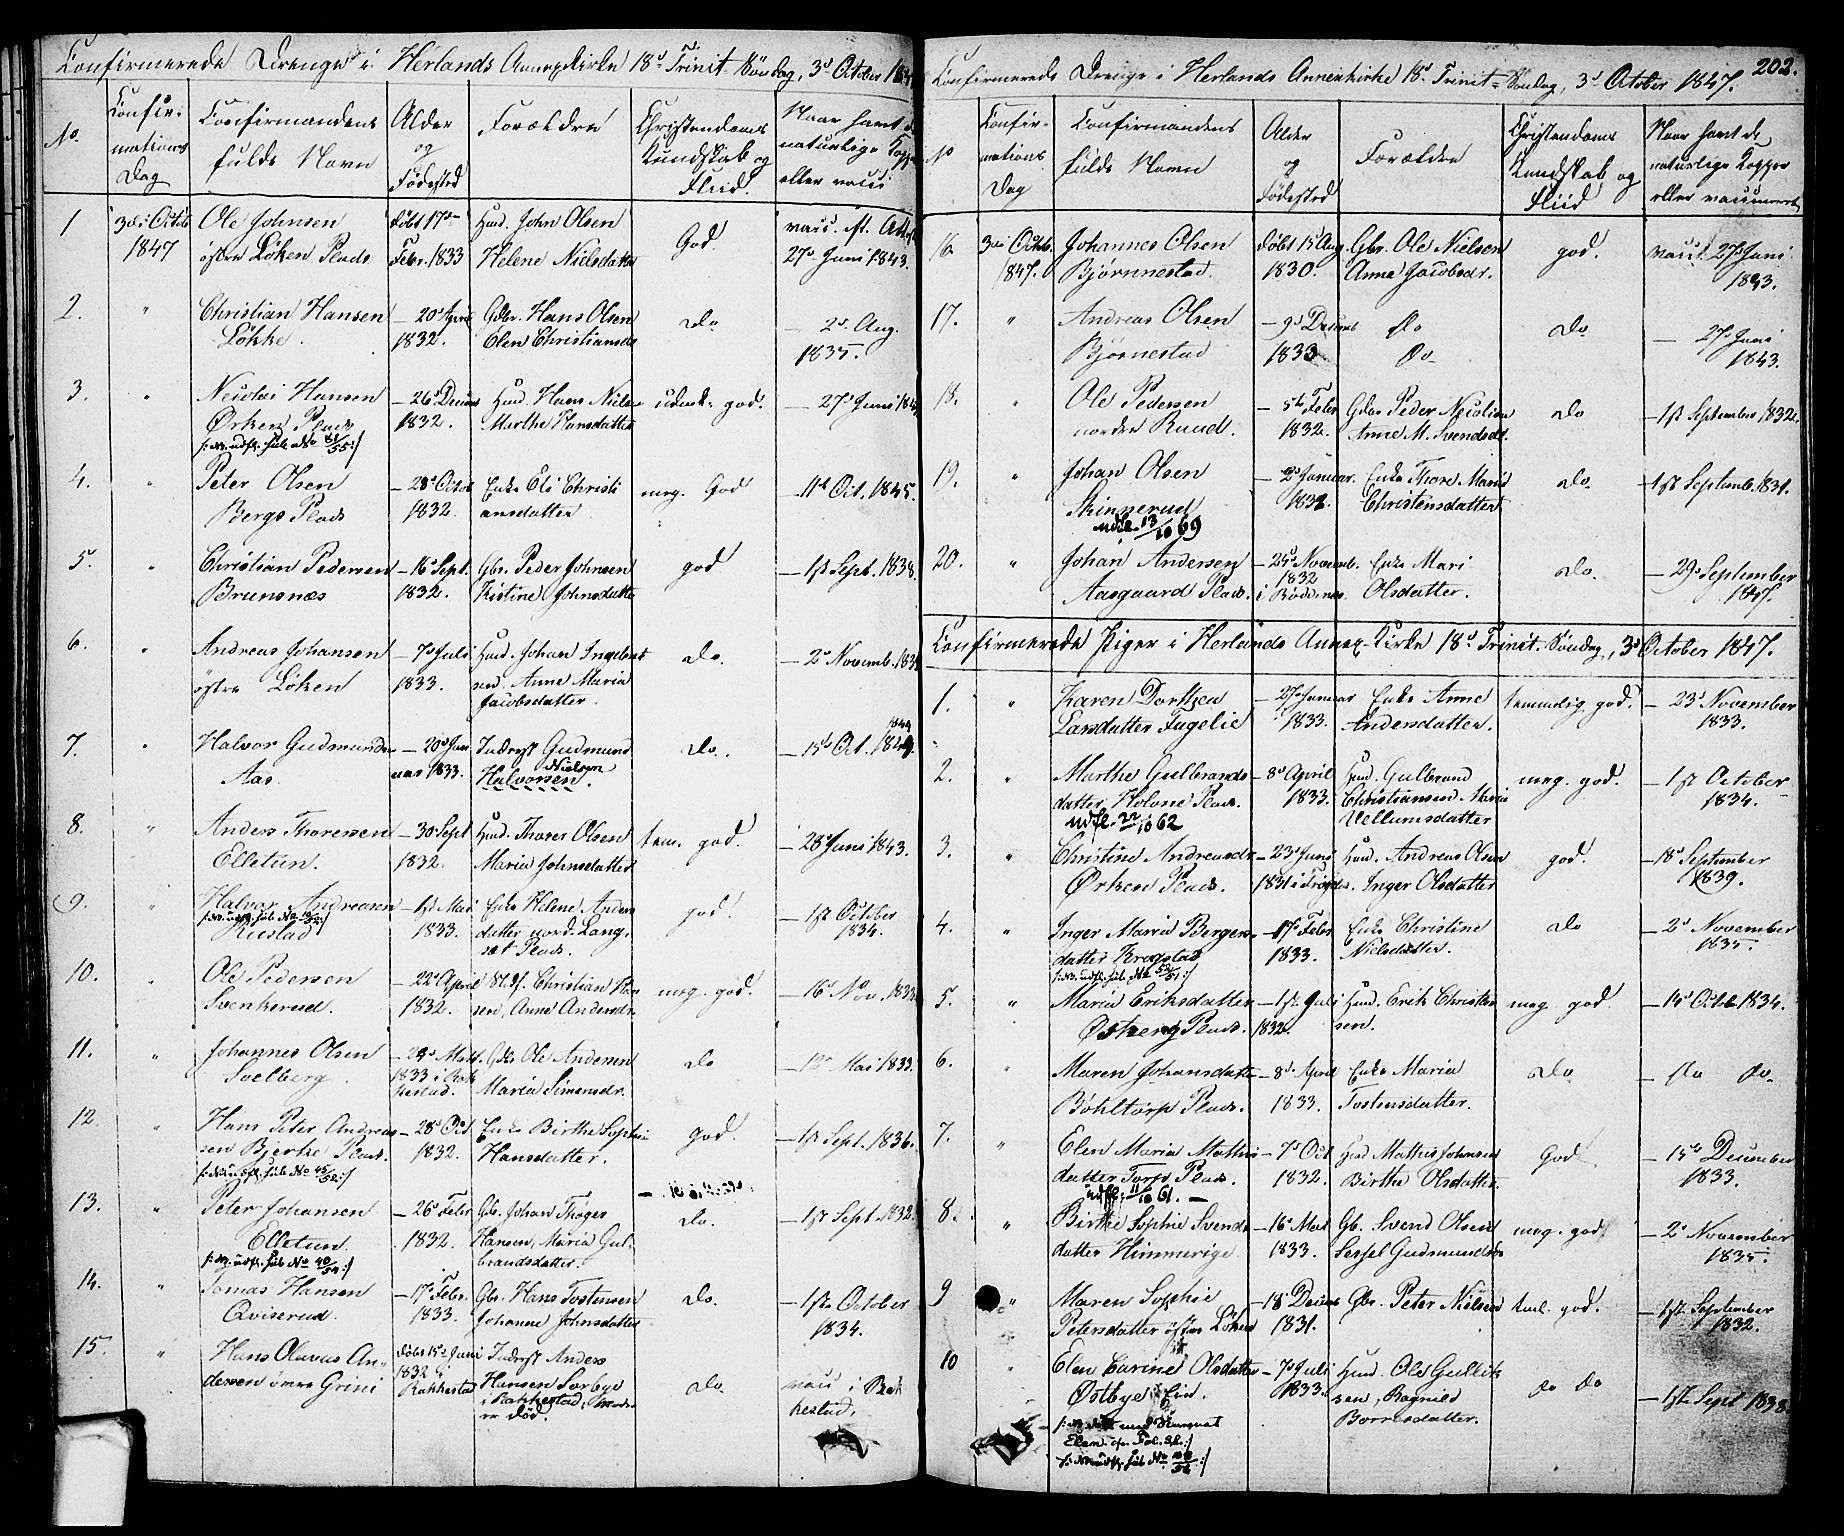 Confirmerede Drenge i Herlands Annexkirke 18d Trinit. Söndag, 3d October 184
No.
Confir-
mations
Dag
Confirmandens
fulde Navn
Alder
og
Födested
Forældre
Christendoms
Kundskab og
Fliid.
Naar havt de
naturlige Kopper
eller vacci
1
3die Octob.
1847
Ole Johnsen
östre Löken Plads
Födt 17de
Febr. 1833
Huusm. John Olsen
Helene Nielsdatter
God.
vacc. eft. Attest
27de Juni 1843.
2.
"
Christian Hansen
Lökke.
— 20d April
1832.
Gdbr. Hans Olsen
Elen Christiansdr
do
— 2d Aug.
1835.
3.
"
Nicolai Hansen
Ørken Plads
— 26d Decemb
1832.
Huusm. Hans Niels
Marthe Hansdatter
udmk. god.
— 27d Juni 184
4.
"
Peter Olsen
Bergs Plads
— 28d Octob
1832.
Enke Eli Christi
ansdatter
meg. God
— 11d Oct. 1845.
5.
"
Christian Pedersen
Brunsnæs
— 16d Sept.
1832.
Gbr. Peder Johnsen
Kistine Johnsdatter
god
— 1st Sept. 1838.
6.
"
Andreas Johansen
östre Löken
— 7d Juli
1833.
Huusm. Johan Ingebret
sen Anne Maria
Jacobsdatter.
do.
— 2d Novemb. 183
7.
"
Halvor Gudmunds
Aas.
— 20d Jan
uar 1833.
Inderst Gudmund
Nielsen
Halvorsen.
do.
1844
— 15d Oct. 1849.
8.
"
Anders Thoresen
Elletun.
— 30 Sept
1832.
Huusm. Thorer Olsen
Maria Johnsdatter
tem. god.
— 28d Juni 1843.
9.
"
Halvor Andreasen
Rustad
— 1st Mai
1833.
Enke Helene Anders
datter nord. Lang-
set Plads.
god.
— 1st October
1834.
10.
"
Ole Pedersen
Svenkerud.
— 22d April
1832.
Christian Han
sen, Anne Andersdr.
meg. god.
— 16d Nov. 1833
11.
"
Johannes Olsen
Solberg.
1833 i Rak
kestad.
Gdbr Ole Andersen
Maria Simensdr.
do
Mai 1833.
12.
"
Hans Peter Andreas
sen Bjerke Plads.
— 28d Oct.
1832.
Enke Birthe Sophie
Hansdatter.
god.
— 1st Sept. 1836.
13.
"
Peter Johansen
Elletun.
— 26d Febr
1832.
Gbr. Johan Thøger
Hansen, Maria Gul-
brandsdatter.
do.
— 1st Sept. 1832.
14.
"
Tomas Hansen
Qviserud.
— 17d Febr.
1833.
Gbr. Hans Tostensen
Johanne Johnsdatter
do.
— 1ste October
1834.
15.
"
Hans Olavus An-
dersen Grini
Födt 15de Juni
1832 i
Rakkestad
Inderst Anders
Hansen Sørbye
i Rakkestad, Moder
er død.
do.
vacc i Rak
kestad,
202.
Confirmerede Drenge i Herlands Annexkirke 18d Trinit. Söndag, 3d October 1847.
No
Confir-
mations
Dag
Confirmandens
fulde Navn
Alder
og
Födested
Forældre
Christendoms
Kundskab og
Fliid
Naar havt de
naturlige Kopper
eller vaccineret
16.
3die Octob.
1847.
Johannes Olsen
Bjørnnestad.
Födt 15d Aug.
1830.
Gbr. Ole Nielsen
Anne Jacobsdr.
god.
vacc. 27d Juni
1843.
17.
"
Andreas Olsen
Bjørnestad
— 9d Decemb
1833
do
do
do
— 27d Juni
1843.
18.
"
Ole Pedersen
nordre Ruud.
— 5te Febr
1832.
Gdbr Peder Nicolisen
Anne M. Svendsdr.
do
— 1st September 1832.
19.
"
Johan Olsen
Skinnerud
udfl. 13/10 69
— 2d Januar.
1832
Enke Thore Marie
Christensdatter
do.
— 1st Septemb. 1831.
20.
"
Johan Andersen
Aasgaard Plads.
— 24d Novemb.
1832
i Röddenes.
Enke Mari
Olsdatter.
do.
— 29d September
1847.
Confirmerede Piger i Herlands Annex-Kirke 18d Trinit. Söndag, 3d October 1847.
1.
"
Karen Dorthea
Larsdatter Fugelie
— 27d Januar
1833.
Enke Anne
Andersdatter.
temmelig god.
— 23d November
1833.
2.
"
Marthe Gulbrands
datter, Holone Plads.
udfl. 22/10 62
— 8d April
1833.
Huusm. Gulbrand
Christiansen Maria
Vellumsdatter
meg. god.
— 1st October
1834.
3.
"
Christine Andreasdr
Ørken Plads.
— 23d Juni
Huusm. Andreas Olsen
Inger Olsdatter
god.
— 18d September
1839.
4.
"
Inger Maria Bergers
datter Krogstad
— 17d Febr
1833.
Enke Christine
Nielsdatter.
do
— 2d November
1835.
5.
"
Maria Eriksdatter
Østreng Plads.
— 1st Juli
1832.
Huusm. Erik Christen
sen.
meg. god
— 14d Octob 1834.
6.
"
Maren Johansdatter
Böhltorp Plads.
— 8d April
1833.
Enke Maria
Tostensdatter.
do
— do do.
7.
"
Elen Maria Mathis
datter Torp Plads.
udfl. 11/10 61. —
— 7d Oct
1832.
Huusm Mathis Johnsen
Birthe Olsdatter
God
— 15d December
1833.
8.
"
Birthe Sophie Svends
datter Himmerige
— 16d Mai
1833.
Gb. Svend Olsen
Sessel Gudmundsdr
meg. god
— 2d November
1835.
9
"
Maren Sophie
Petersdatter östre Löken
— 18d Decemb
1831.
Gbr. Peter Nielsen
tml. god.
— 1st September
1832.
10
"
Elen Carine Olsdatter
Østbye Eie.
— 7d Juli
1833.
Huusm. Ole Gullik
sen, Ragnild
Borresdatter.
do do
— 1ste Sept 1838.